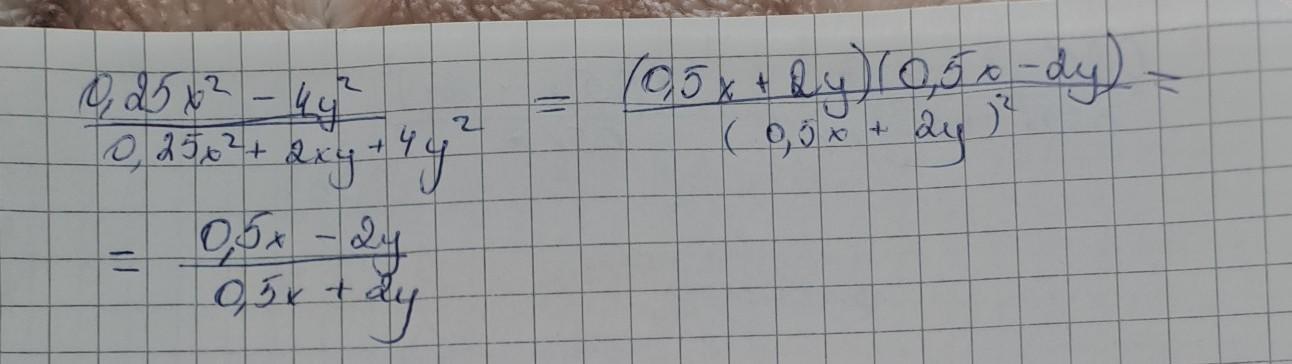 0,25x² - 4y² / 0,25x² + 2xy + 4y² = (0,5x + 2y)(0,5x - 2y) / (0,5x + 2y)² =
= 0,5x - 2y / 0,5x + 2y